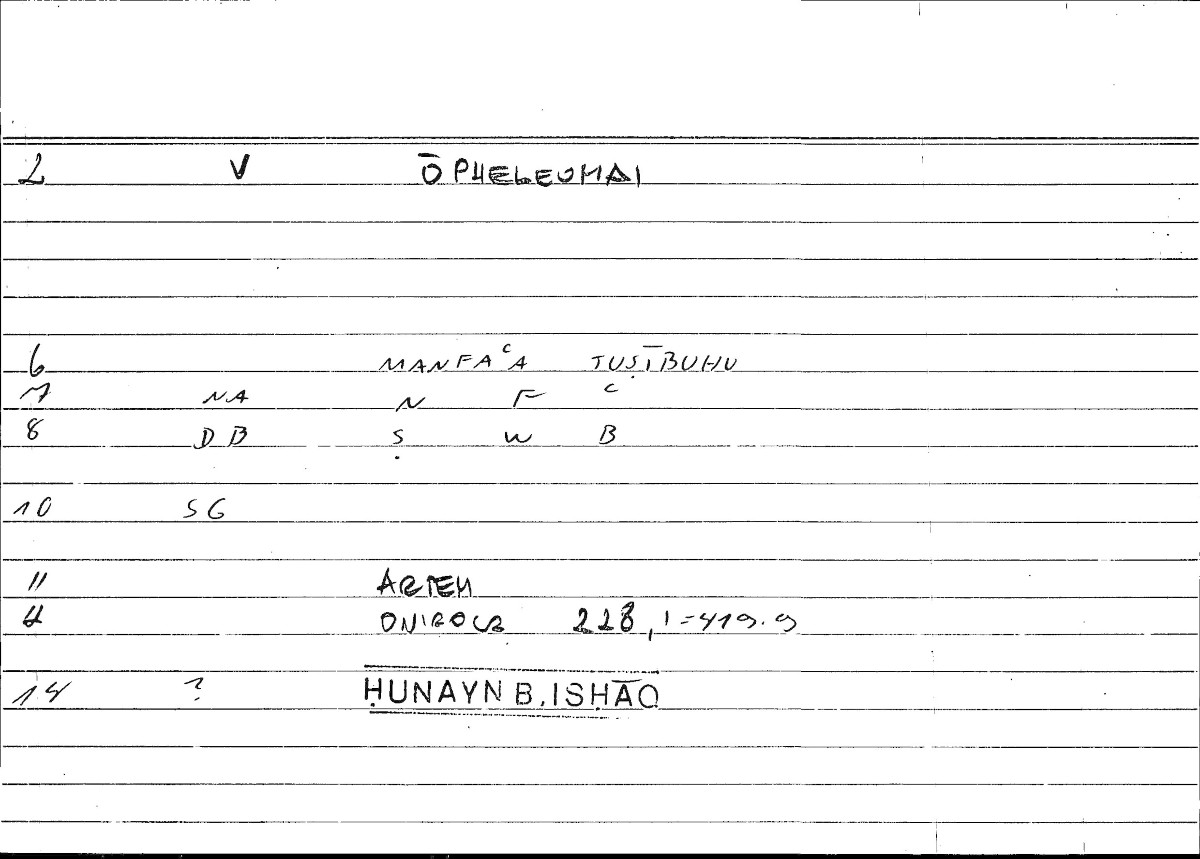 2 V ŌPHELEOMAI
6 MANFAᶜA TUṢĪBUHU
7 NA N F ᶜ
8 DB Ṣ W B
10 SG
11 ARTEM
12 ONIROCR 228,1=419.9
14 ? ḤUNAYN B. ISHĀQ